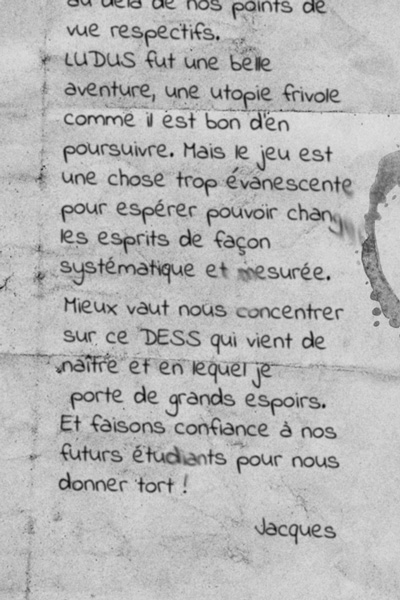 au delà de nos points de
vue respectifs.
LUDUS fut une belle
aventure, une utopie frivole
comme il est bon d'en
poursuivre. Mais le jeu est
une chose trop évanescente
pour espérer pouvoir
les esprits de façon
systématique et mesurée.
Mieux vaut nous concentrer
sur ce DESS qui vient de
naître et en lequel je
porte de grands espoirs.
Et faisons confiance à nos
futurs étudiants pour nous
donner tort !
Jacques